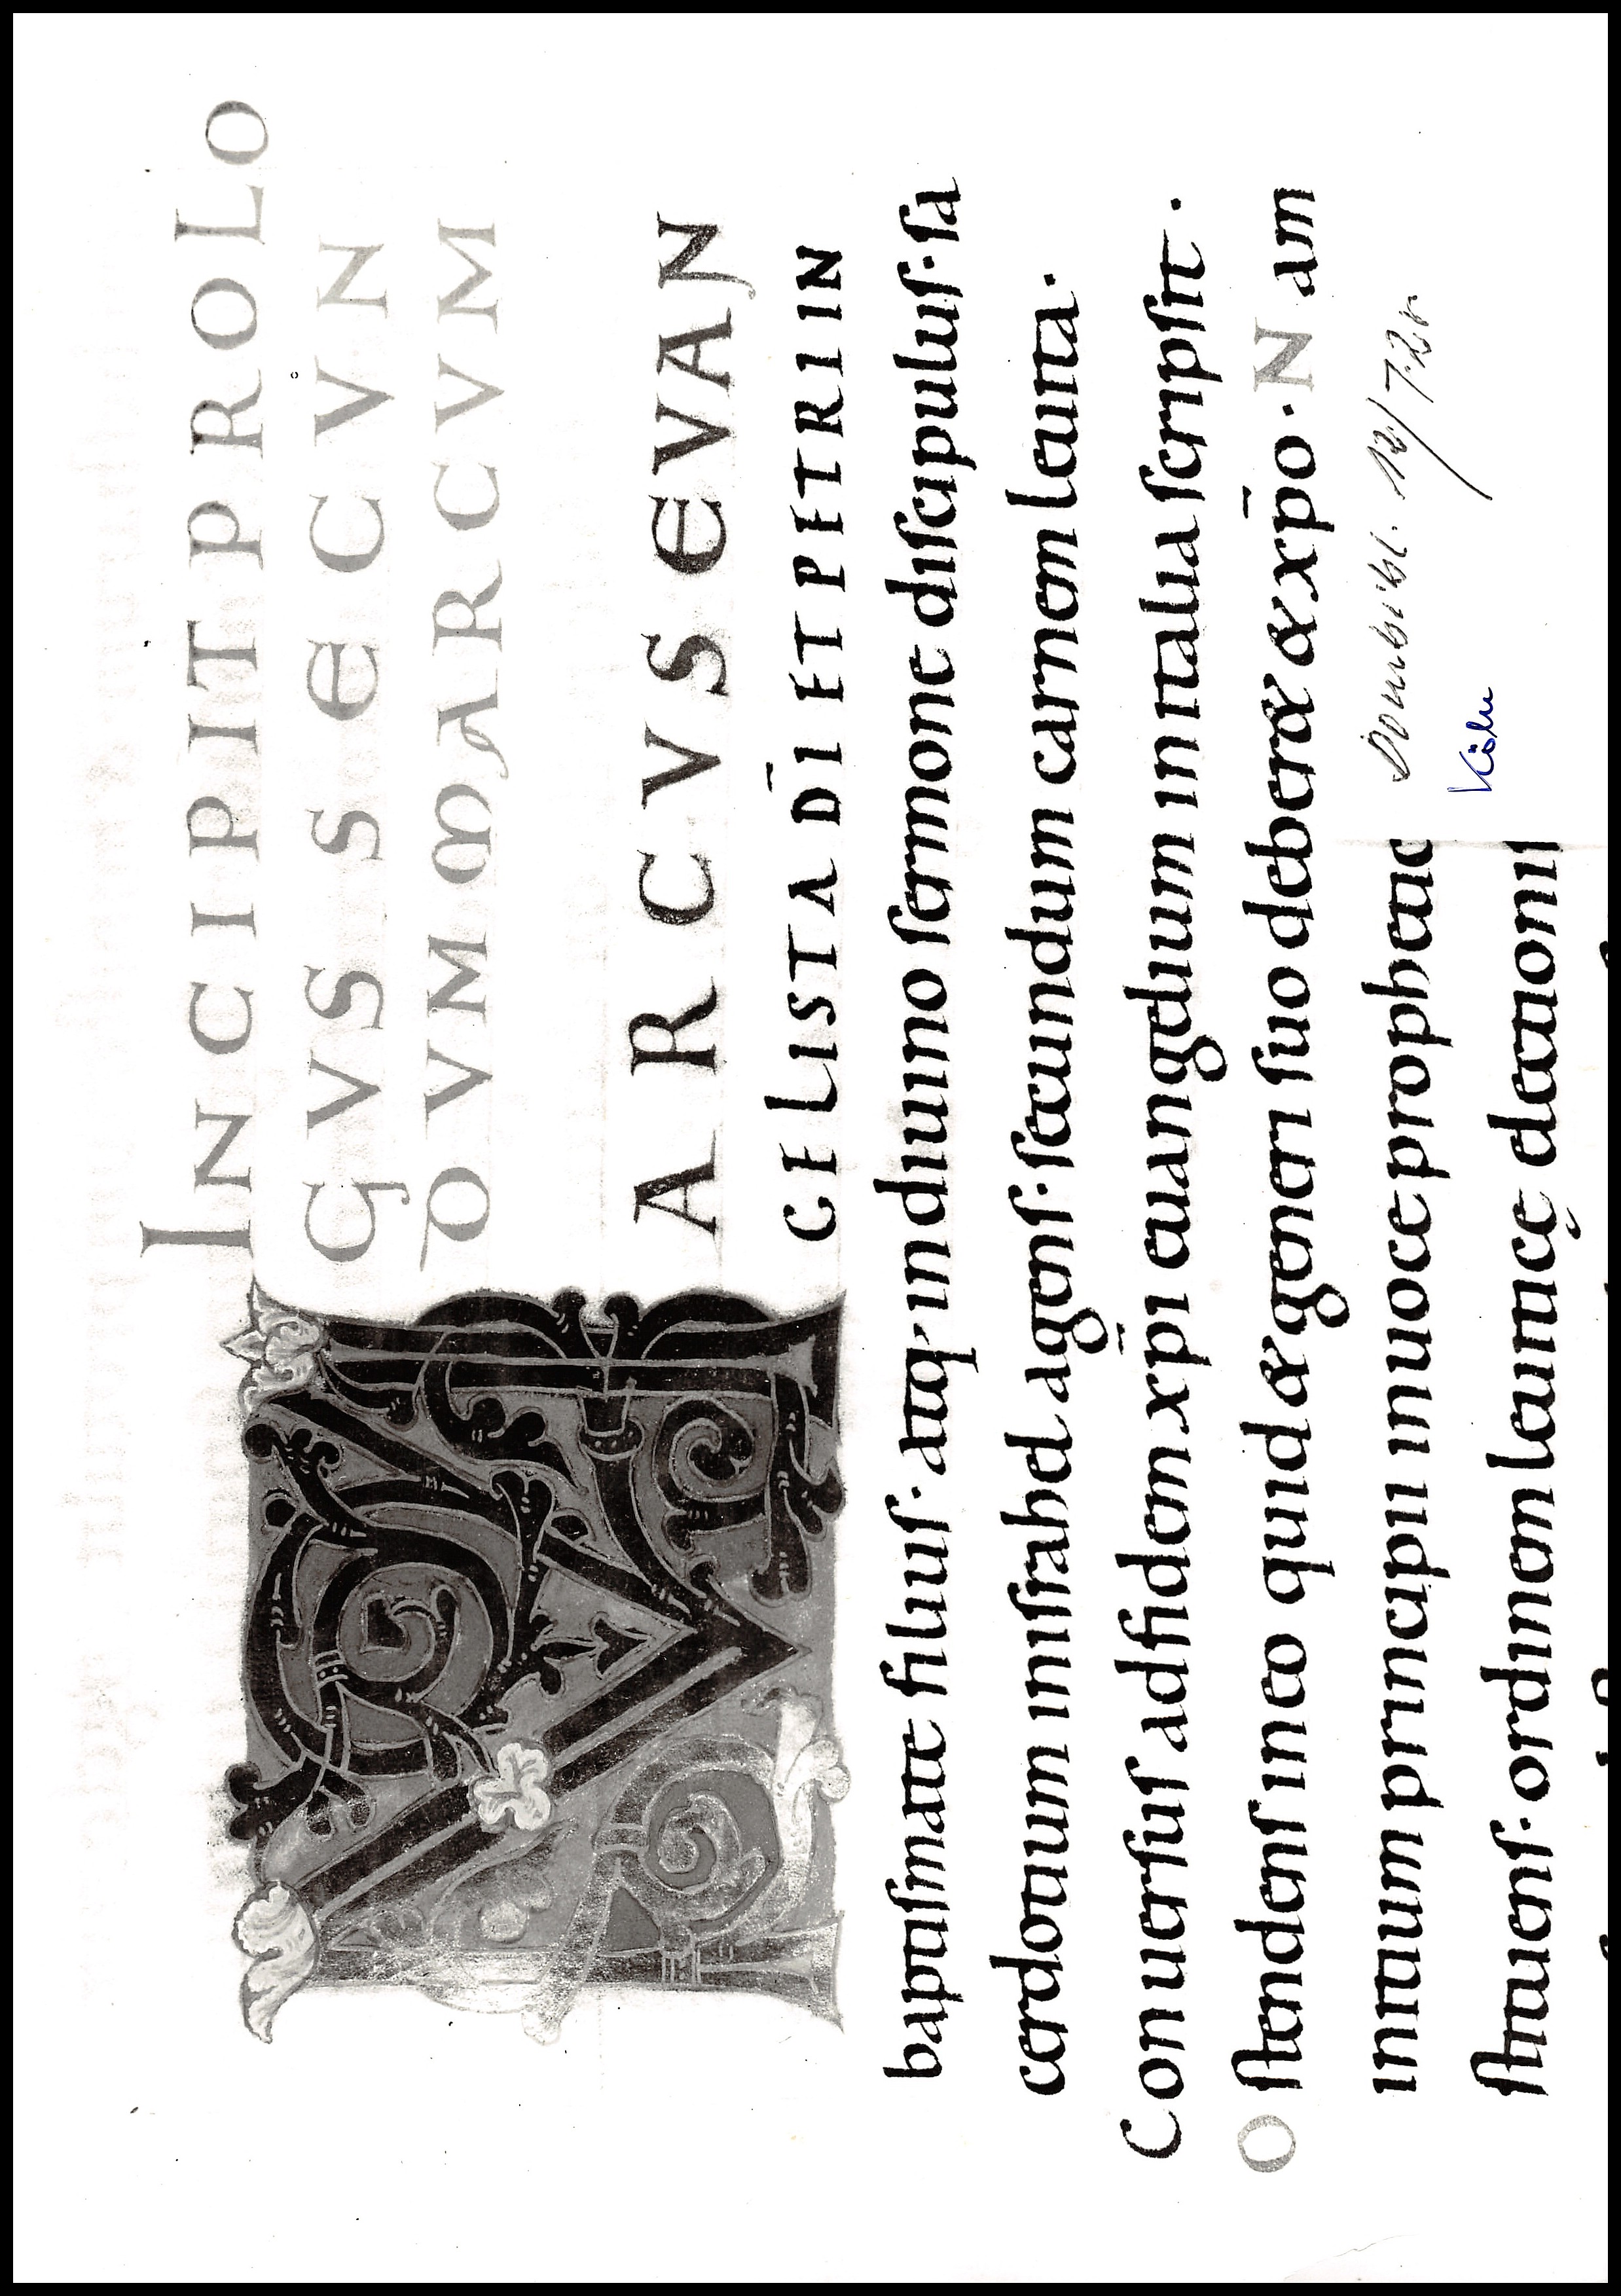 INCIPIT PROLO
GVS SECVN
DVM MARCVM
MARCVS EVAN
GELISTA DI ET PETRI IN
baptiſmate filiuſ · atq· in diuino ſermone diſcipuluſ · ſa
cerdotium iniſrahel agenſ · ſecundum carnem leuita ·
Conuerſuſ ad fidem xp̄i euangelium initalia ſcripſit ·
Oſtendenſ ineo quid & generi ſuo deber& & xp̄o · Nam
initium principii inuoce propheticae
ſtruenſ · ordinem leuiticę lectioniſ
Dombibl. 12/72r
Köln